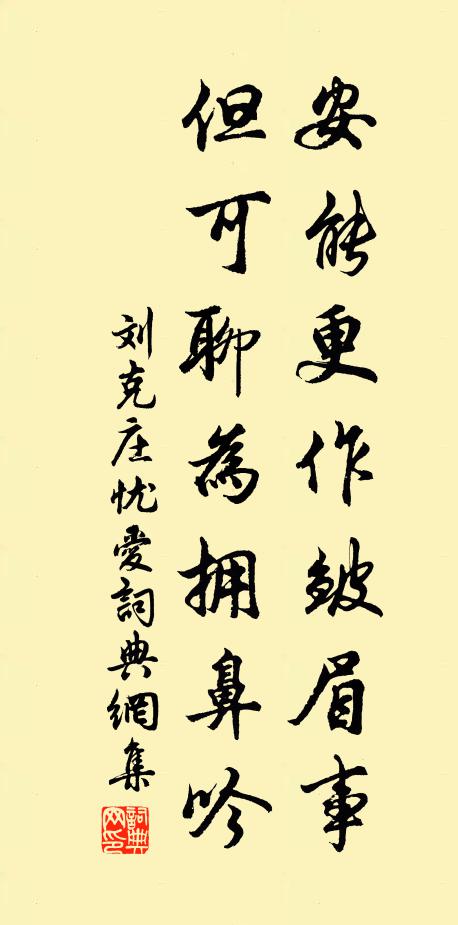 安能更作皱眉事
但可聊為拥鼻吟
刘克庄忧爱詞典網集
詞典网印